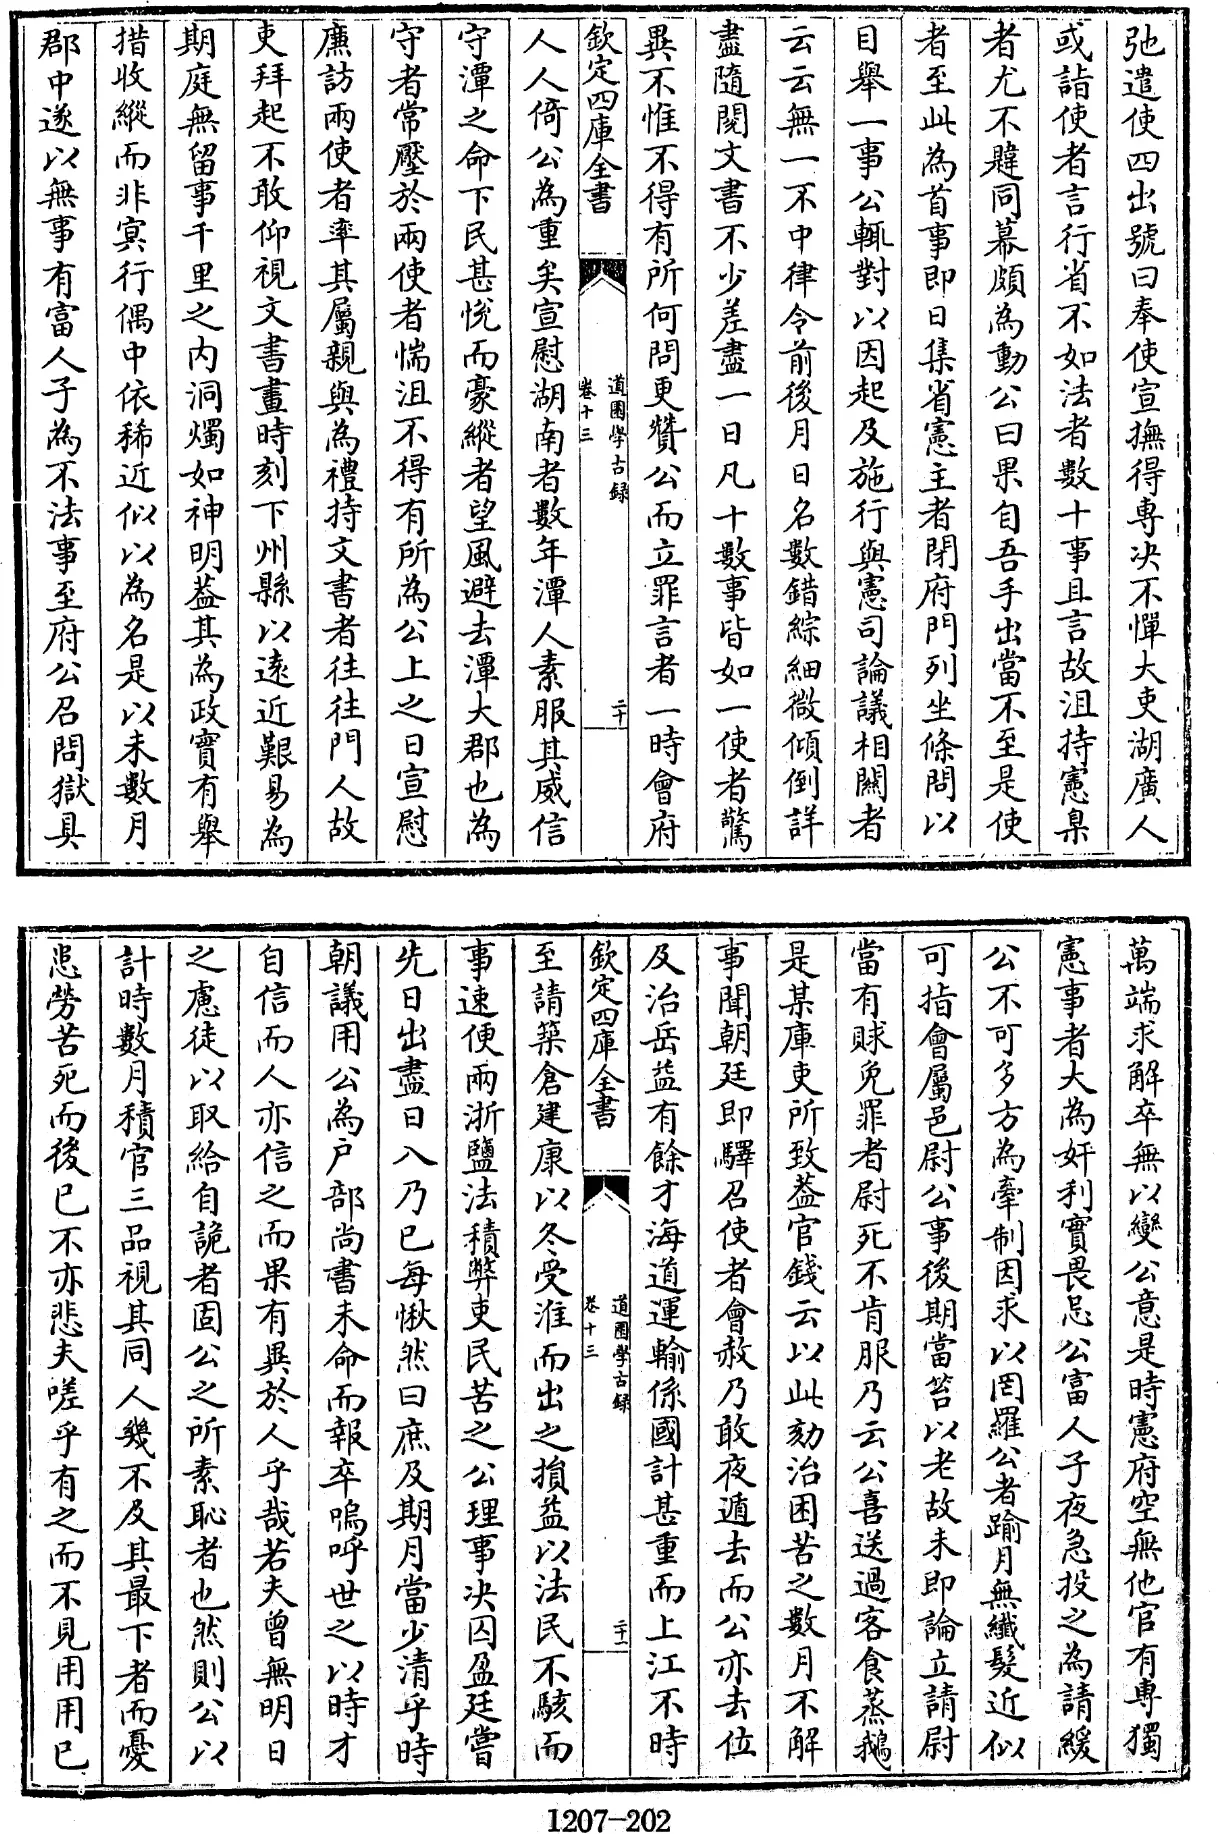 弛遣使四出號曰奉使宣撫得專决不憚大吏湖廣人
或詣使者言行省不如法者數十事且言故沮持憲臬
者尤不韙同幕頗為動公曰果自吾手出當不至是使
者至此為首事即日集省憲主者閉府門列坐條問以
目舉一事公輒對以因起及施行與憲司論議相關者
云云無一不中律令前後月日名數錯綜細微傾倒詳
盡隨閱文書不少差盡一日凡十數事皆如一使者驚
異不惟不得有所何問更贊公而立罪言者一時會府
欽定四庫全書
道園學古録
卷十三
二十
人人倚公為重矣宣慰湖南者數年潭人素服其威信
守潭之命下民甚悅而豪縱者望風避去潭大郡也為
守者常壓於兩使者惴沮不得有所為公上之日宣慰
廉訪兩使者率其屬親與為禮持文書者往往門人故
吏拜起不敢仰視文書晝時刻下州縣以遠近艱易為
期庭無留事千里之内洞燭如神明葢其為政實有舉
措收縱而非冥行偶中依稀近似以為名是以未數月
郡中遂以無事有富人子為不法事至府公召問獄具
萬端求解卒無以變公意是時憲府空無他官有專獨
憲事者大為奸利實畏忌公富人子夜急投之為請緩
公不可多方為牽制因求以罔羅公者踰月無纖髮近似
可指會屬邑尉公事後期當笞以老故未即論立請尉
當有賕免罪者尉死不肯服乃云公喜送過客食蒸鵝
是某庫吏所致葢官錢云以此劾治困苦之數月不解
事聞朝廷即驛召使者會赦乃敢夜遁去而公亦去位
及治岳益有餘才海道運輸係國計甚重而上江不時
欽定四庫全書
道園學古録
卷十三
二十一
至請築倉建康以冬受淮而出之損益以法民不駭而
事速便兩浙鹽法積弊吏民苦之公理事决囚盈廷嘗
先日出盡日入乃已每愀然曰庶及期月當少清乎時
朝議用公為户部尚書未命而報卒嗚呼世之以時才
自信而人亦信之而果有異於人乎哉若夫曾無明日
之慮徒以取給自詭者固公之所素恥者也然則公以
計時數月積官三品視其同人幾不及其最下者而憂
思勞苦死而後已不亦悲夫嗟乎有之而不見用用已
1207-202